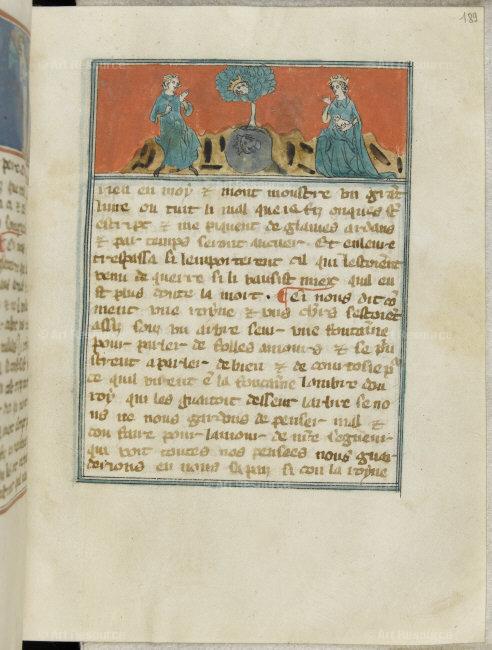 189
rien en moy & mont moustre un grāt
livre ou tuit li mal que ie fiz onques st
escript & me piquent de glaives ardans
& par temps seront au cuer. Et en leure
trespassa si lemporterent cil qui lestoient
venu de querre si li vausist miex quil eu
st plus doute la mort. Ci nous dit cō
ment une royne & uns chlrs sestoiēt
assis souz un arbre seur une fontainne
pour parler de folles amours & se pri
strent a parler de bien & de courtoisie pr
ce quil virent ē la fontainne lombre dou
roy qui les guaitoit desseur larbre se no
us ne nous gardons de penser mal &
dou faire pour lamour de nre segneur
qui voit toutes nos pensees nous guar
derions en nous la pais si con la royne